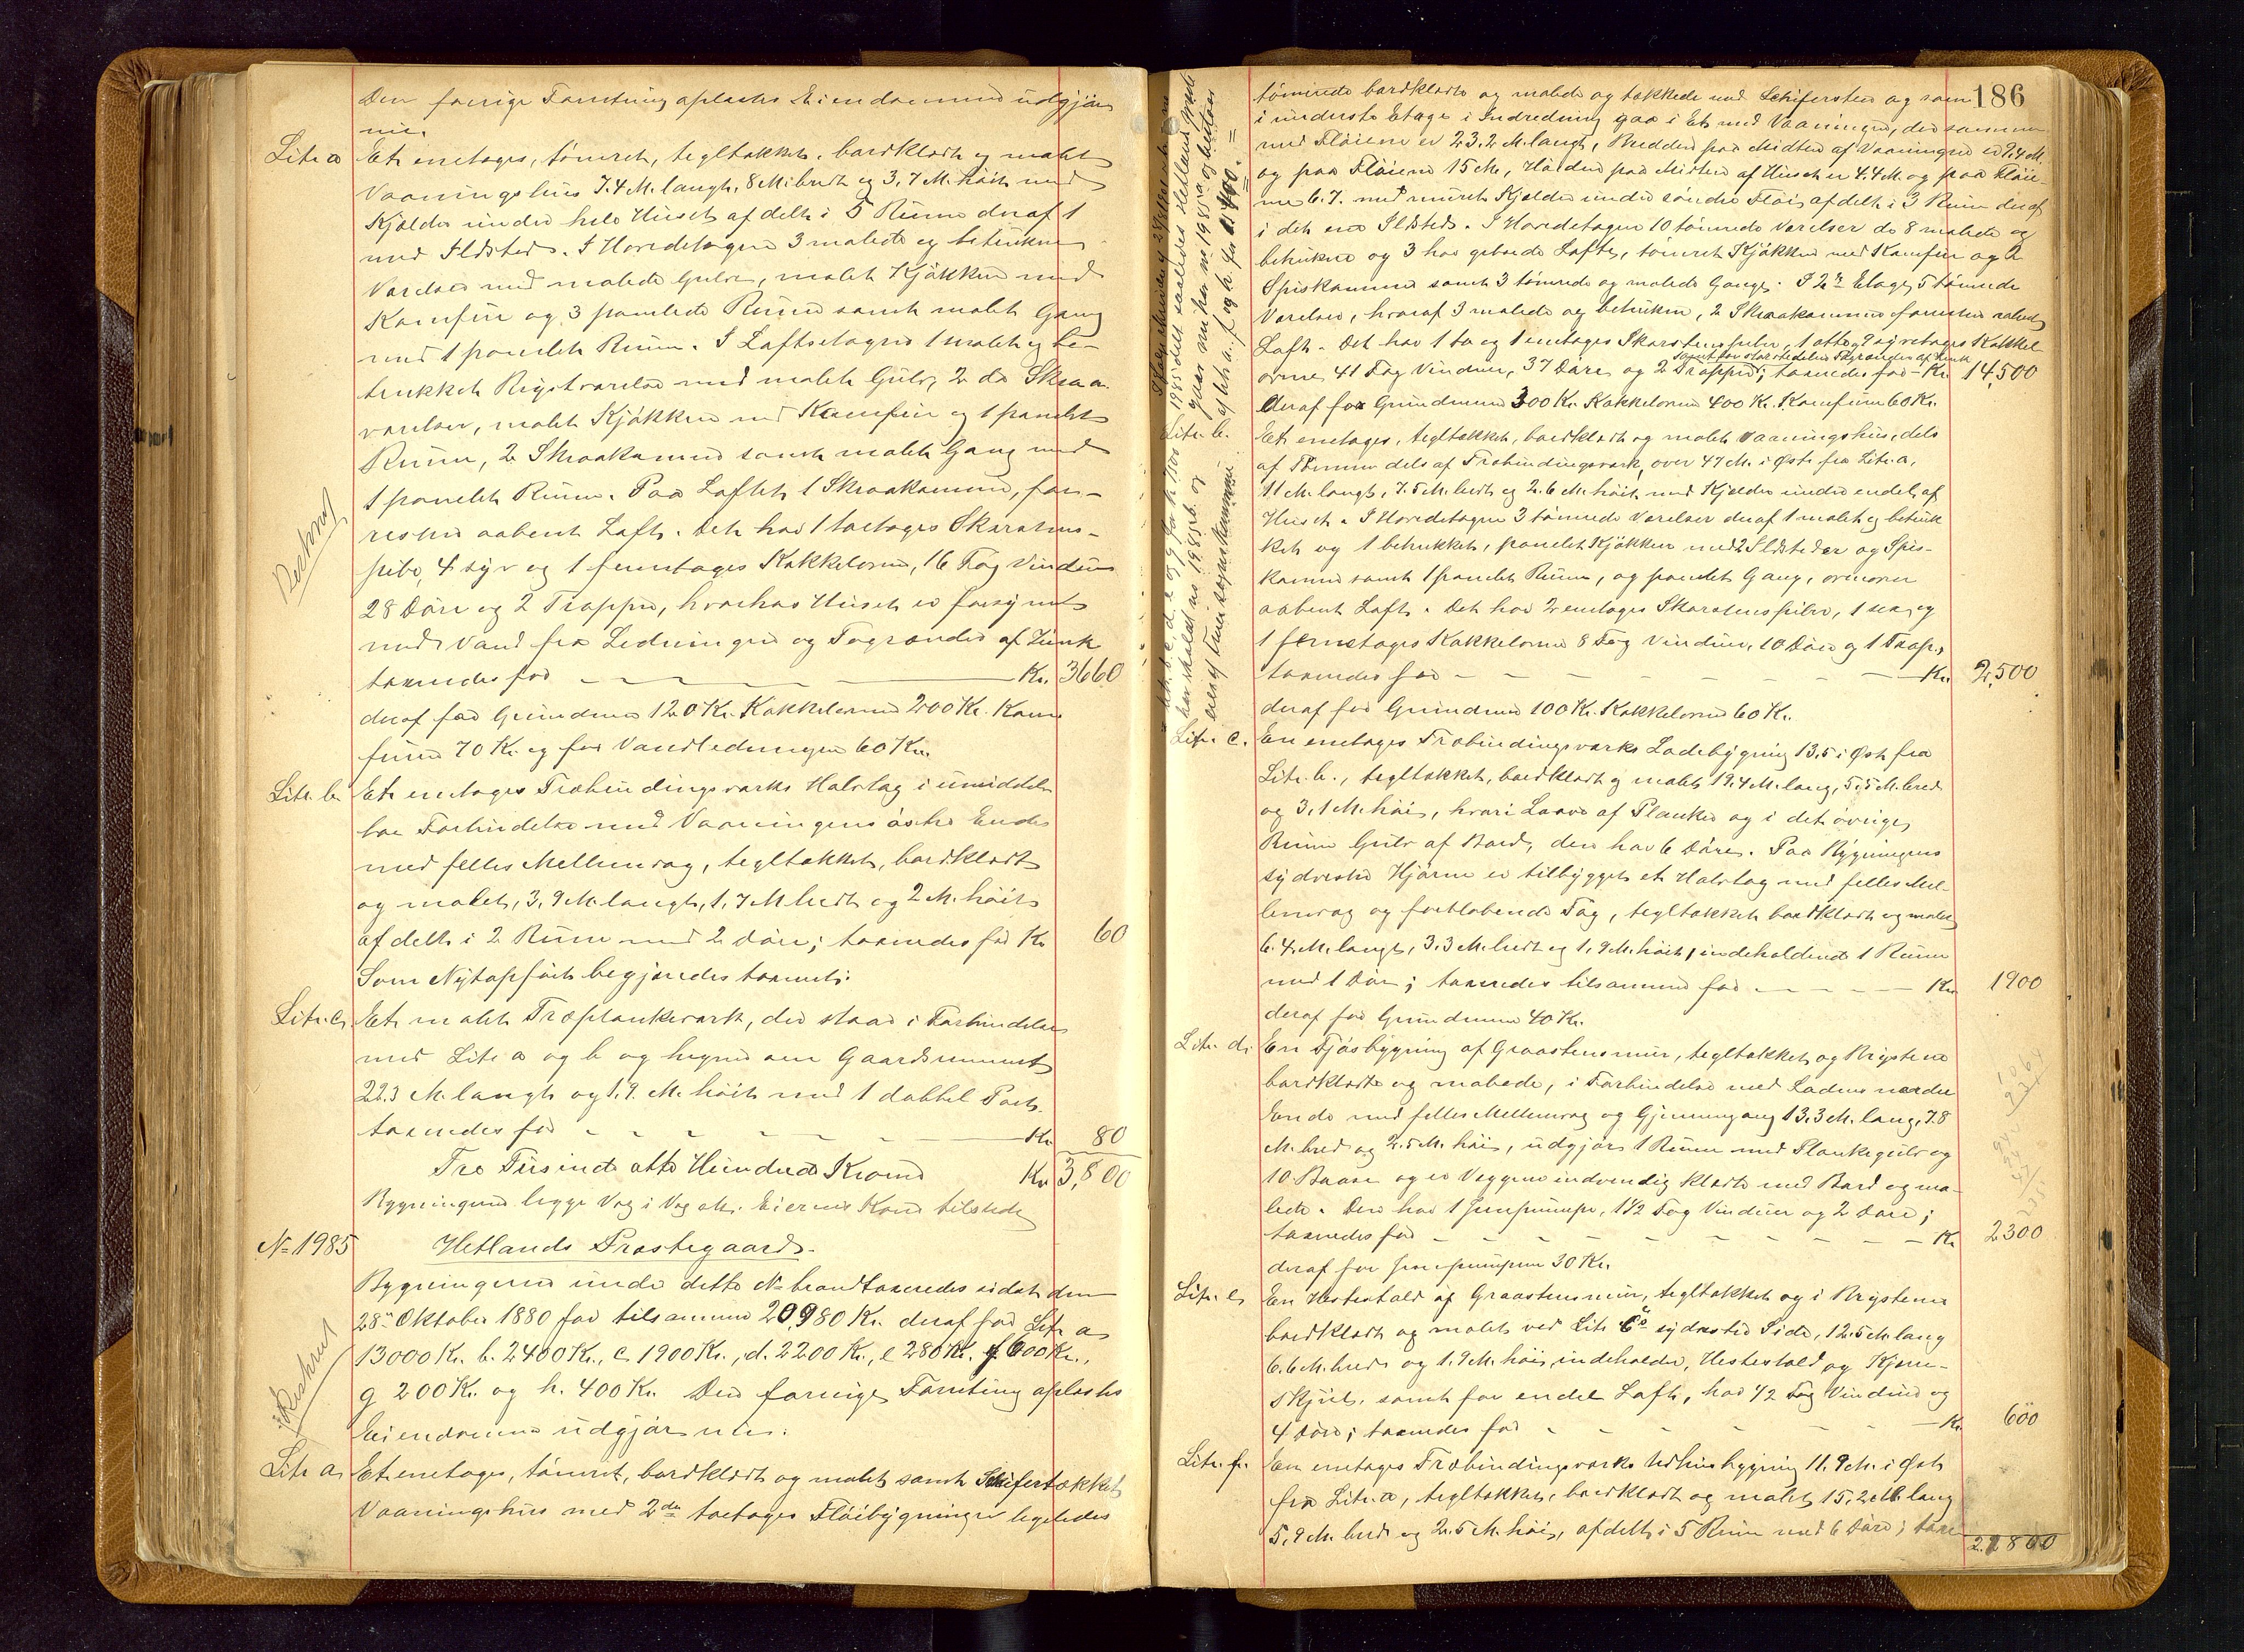 Den forrige Taxering oplæstes. Eiendommen udgjør
nu:
Litr a Et enetages, tømret, tegltækket, bordklædt og malet
Vaaningshus 7.4 M. langt, 8 M. bredt og 3,7 M. høit med
Kjælder under hele Huset afdelt i 5 Rum deraf 1
med Ildsted. I Hovedetagen 3 malede og betrukne
Værelser med malede Gulve, malet Kjøkken med
Komfur og 3 panelede Rum samt malet Gang
med 1 panelet Rum. I Loftsetagen 1 malet og be-
trukket Kvistværelse med malet Gulv, 2 do Skraa-
værelser, malet Kjøkken med Komfur og 1 panelet
Rum, 2 Skraakammer samt malet Gang med
1 panelet Rum. Paa Loftet 1 Skraakammer, for-
resten aabent Loft. Det har 1 toetages Skorstens-
pibe, 4 syv og 1 femetages Kakkelovne, 16 Fag Vinduer
28 Døre og 2 Trapper, hvorhos Huset er forsynet
med Vand fra Ledningen og Tagrender af Zink
taxeredes for Kr. 3660
deraf for Grundmur 120 Kr. Kakkelovne 200 Kr. Kom-
furer 70 Kr. og for Vandledningen 60 Kr.
Litr. b. Et enetages Træbindingsværks Halvtag i umiddel-
bar Forbindelse med Vaaningens østre Ende
med felles Mellemvæg, tegltækket, bordklædt
og malet, 3,9 M. langt, 1,7 M. bredt og 2 M. høit
afdelt i 2 Rum med 2 Døre; taxeredes for Kr. 60
Som Nyopført begjæredes taxeret:
Litr. c. Et malet Træplankeværk, der staar i Forbindelse
med Litr a og b og hegner om Gaardsrummet
22.3 M. langt og 1,9 M. høit med 1 dobbel Port.
taxeredes for Kr. 80
Tre Tusinde otte Hundrede Kroner Kr. 3,800
Bygningerne ligge Væg i Væg etc. Eierens Kone tilstede
No 1985 Hetlands Prestegaard.
Bygningerne under dette No brandtaxeredes sidst den
28de Oktober 1880 for tilsammen 20,980 Kr. deraf for Litr a
13000 Kr. b. 2400 Kr., c. 1900 Kr., d. 2200 Kr., e 280 Kr. f. 600 Kr.,
g 200 Kr. og h. 400 Kr. Den forrige Taxering oplæstes
Eiendommen udgjør nu:
Litr a. Et enetages, tømret, bordklædt og malet samt Skifertækket
Vaaningshus med 2de toetages Fløibygninger ligeledes
186
tømrede bordklædte og malede og tækkede med Skifersten og som
i underste Etage i Indredning gaa i Et med Vaaningen, der sammen
med Fløiene er 23.2 M. langt, Bredden paa Midten af Vaaningen er 9.4 M.
og paa Fløiene 15 M., Høiden paa Midten af Huset er 4.4 M. og paa Fløie-
ne 6.7. med muret Kjælder under søndre Fløi, afdelt i 3 Rum deraf
i det ene Ildsted. I Hovedetagen 10 tømrede Værelser do 8 malede og
betrukne og 3 har gibsede Lofte, tømret Kjøkken med Komfur og 2
Spiskammer samt 3 tømrede og malede Gange. I 2den Etage 5 tømrede
Værelser, hvoraf 3 malede og betrukne, 2 Skraakammer forresten aabent
Loft. Det har 1 to og 1 enetages Skorstenspiber, 1 otte og 9 syvetages Kakkel-
samt for største delen Tagrender af Zink
ovne 41 Fag Vinduer, 37 Døre og 2 Trapper, taxeredes for Kr. 14,500
deraf for Grundmuren 300 Kr. Kakkelovne 400 Kr. Komfuren 60 Kr.
Litr. b. Et enetages, tegltækket, bordklædt og malet Vaaningshus, dels
af Tømmer dels af Træbindingsværk, over 47 M. i Øst fra Litr. a,
11 M. langt, 7.5 M. bredt og 2.6 M. høit med Kjælder under endel af
Huset. I Hovedetagen 3 tømrede Værelser deraf 1 malet og betruk-
ket og 1 betrukket, panelet Kjøkken med 2 Ildsteder og Spis-
kammer samt 1 panelet Rum, og panelet Gang, ovenover
aabent Loft. Det har 2 enetages Skorstenspiber, 1 sex og
1 femetages Kakkelovne 8 Fag Vinduer, 10 Døre og 1 Trap,
taxeredes for Kr. 2,500
deraf for Grundmur 100 Kr. Kakkelovne 60 Kr.
Litr. c. En enetages Træbindingsværks Ladebygning 13,5 i Øst fra
Litr. b., tegltækket, bordklædt og malet 19.4 M. lang, 5,5 M. bred
og 3,1 M. høi, hvori Laave af Planker og i det øvrige
Rum Gulv af Bord, den har 6 Døre. Paa Bygningens
sydvestre Hjørne er tilbygget et Halvtag med felles Mel-
lemvæg og fortløbende Tag, tegltækket bordklædt og malet
6.4 M. langt, 3.3 M. bredt og 1,9 M. høit, indeholdende 1 Rum
med 1 Dør; taxeredes tilsammen for Kr. 1900
deraf for Grundmur 40 Kr.
Litr. d. En Fjøsbygning af Graastensmur, tegltækket og Røstene
bordklædte og malede, i Forbindelse med Ladens nordre
Ende med felles Mellemvæg og Gjennemgang 13.3 M. lang, 7.8
M. bred og 2.5 M. høi, udgjør 1 Rum med Plankegulv og
10 Baase og er Væggene indvendig klædte med Bord og ma-
lede. Den har 1 Jernpumpe, 1½ Fag Vinduer og 2 Døre;
taxeredes for Kr. 2300
deraf for Jernpumpen 30 Kr.
Litr. e. En Hestestald af Graastensmur, tegltækket og i Røstene
bordklædt og malet ved Litr. c's sydøstre Side, 12.5 M. lang
6.6 M. bred og 1.9 M. høi indeholder, Hestestald og Kjøre-
skjul, samt for endel Loft, har ½ Fag Vindue og
4 Døre; taxeredes for Kr. 600
Litr. f. En enetages Træbindingsværks Udhusbygning 11.9 M. i Øst
fra Litr. a, tegltækket, bordklædt og malet 15,2 M. lang
5,9 M. bred og 2.5 M. høi, afdelt i 5 Rum med 6 Døre; taxe-
21800